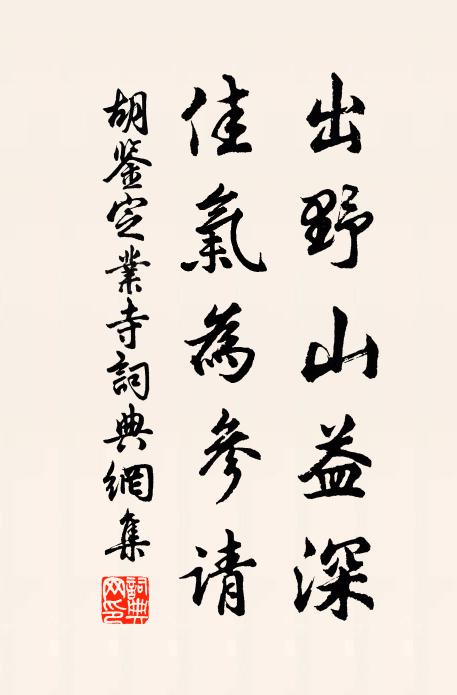 出野山益深
佳氣為參请
胡鉴定業寺詞典網集
詞典網印